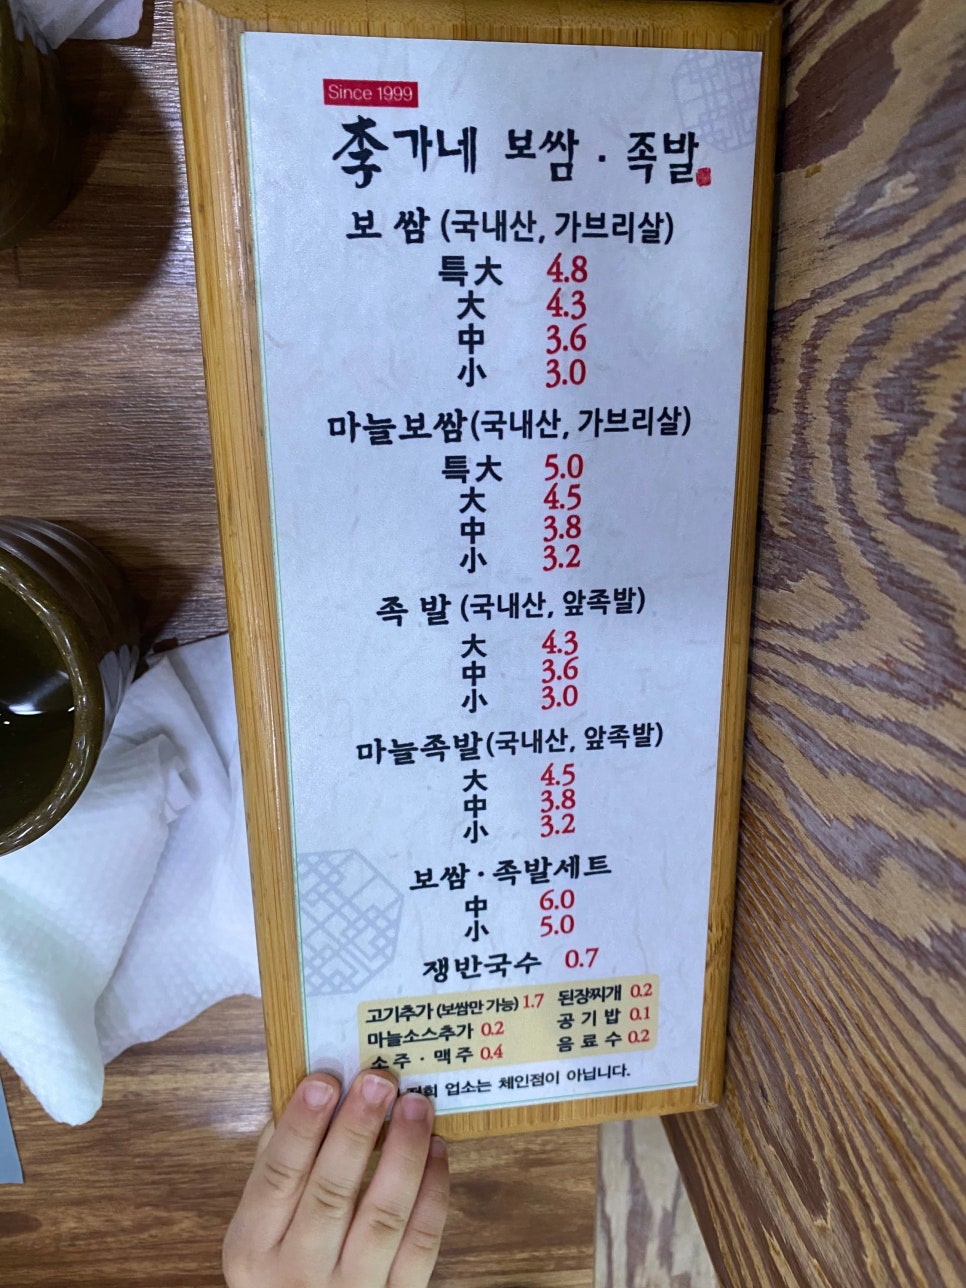 Since 1999
李가네 보쌈 · 족발
보쌈 (국내산, 가브리살)
특大 4.8
大 4.3
中 3.6
小 3.0
마늘보쌈(국내산, 가브리살)
특大 5.0
大 4.5
中 3.8
小 3.2
족발 (국내산, 앞족발)
大 4.3
中 3.6
小 3.0
마늘족발(국내산, 앞족발)
大 4.5
中 3.8
小 3.2
보쌈·족발세트
中 6.0
小 5.0
쟁반국수 0.7
고기추가 (보쌈만 가능) 1.7 된장찌개 0.2
마늘소스추가 0.2 공기밥 0.1
소주·맥주 0.4 음료수 0.2
업소는 체인점이 아닙니다.